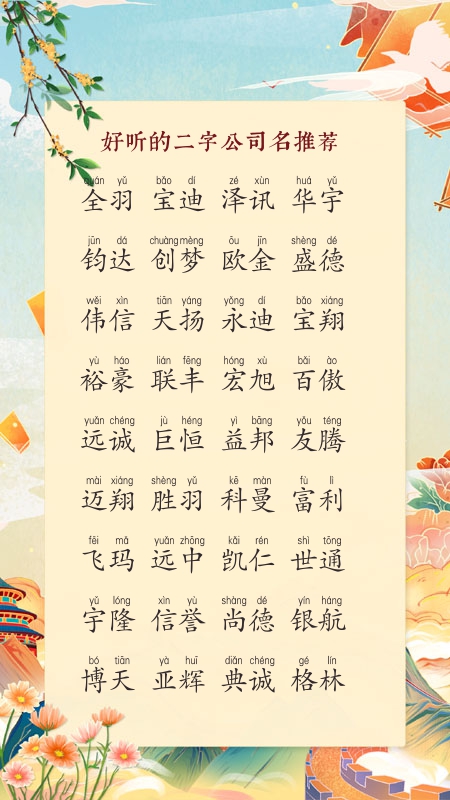 好听的二字公司名推荐
quán yǔ bǎo dí zé xùn huá yǔ
全羽 宝迪 泽讯 华宇
jūn dá chuàng mèng ōu jīn shèng dé
钧达 创梦 欧金 盛德
wěi xìn tiān yáng yǒng dí bǎo xiáng
伟信 天扬 永迪 宝翔
yù háo lián fēng hóng xù bǎi ào
裕豪 联丰 宏旭 百傲
yuǎn chéng jù héng yì bāng yǒu téng
远诚 巨恒 益邦 友腾
mài xiáng shèng yǔ kē màn fù lì
迈翔 胜羽 科曼 富利
fēi mǎ yuǎn zhōng kǎi rén shì tōng
飞玛 远中 凯仁 世通
yǔ lóng xìn yù shàng dé yín háng
宇隆 信誉 尚德 银航
bó tiān yà huī diǎn chéng gé lín
博天 亚辉 典诚 格林